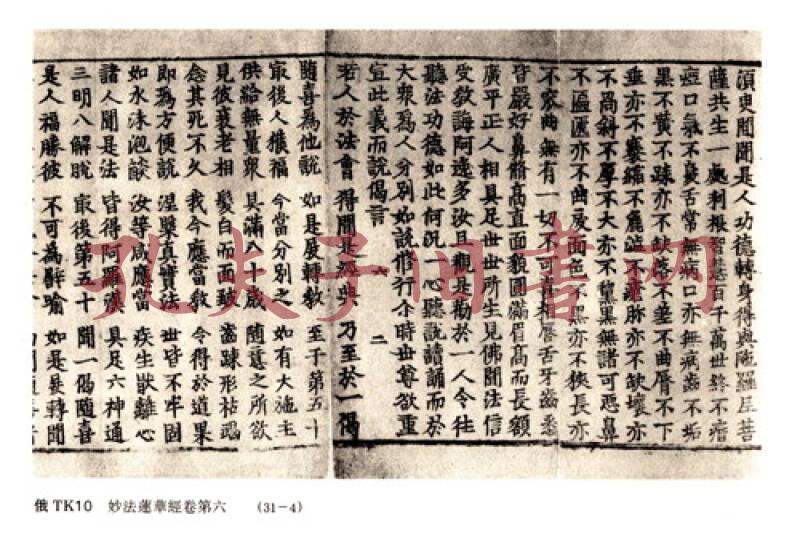 須臾聞聞是人功德轉身得與陁羅尼菩
薩共生一處利根智慧百千萬世終不瘖
瘂口氣不臭舌常無病口亦無病齒不垢
黑不黃不踈亦不缺落不差不曲脣不下
垂亦不褰縮不麁澁不瘡胗亦不缺壞亦
不喎斜不厚不大亦不黧黑無諸可惡鼻
不匾㔸亦不曲戾面色不黑亦不狹長亦
不窊曲無有一切不可喜相脣舌牙齒悉
皆嚴好鼻脩高直面貌圓滿眉高而長額
廣平正人相具足世世所生見佛聞法信
受教誨阿逸多汝且觀是勸於一人令往
聽法功德如此何況一心聽說讀誦而於
大衆爲人分別如說修行尒時世尊欲重
宣此義而說偈言
六 二
若人於法會 得聞是經典 乃至於一偈
隨喜爲他說 如是展轉教 至于第五十
冣後人獲福 今當分別之 如有大施主
供給無量衆 具滿八十歲 隨意之所欲
見彼衰老相 髮白而面皺 齒踈形枯竭
念其死不久 我今應當教 令得於道果
即爲方便說 涅槃真實法 世皆不牢固
如水沫泡燄 汝等咸應當 疾生猒離心
諸人聞是法 皆得阿羅漢 具足六神通
三明八解脫 冣後第五十 聞一偈隨喜
是人福勝彼 不可爲譬喻 如是展轉聞
孔夫子旧书网
俄TK10 妙法蓮華經卷第六 (31-4)